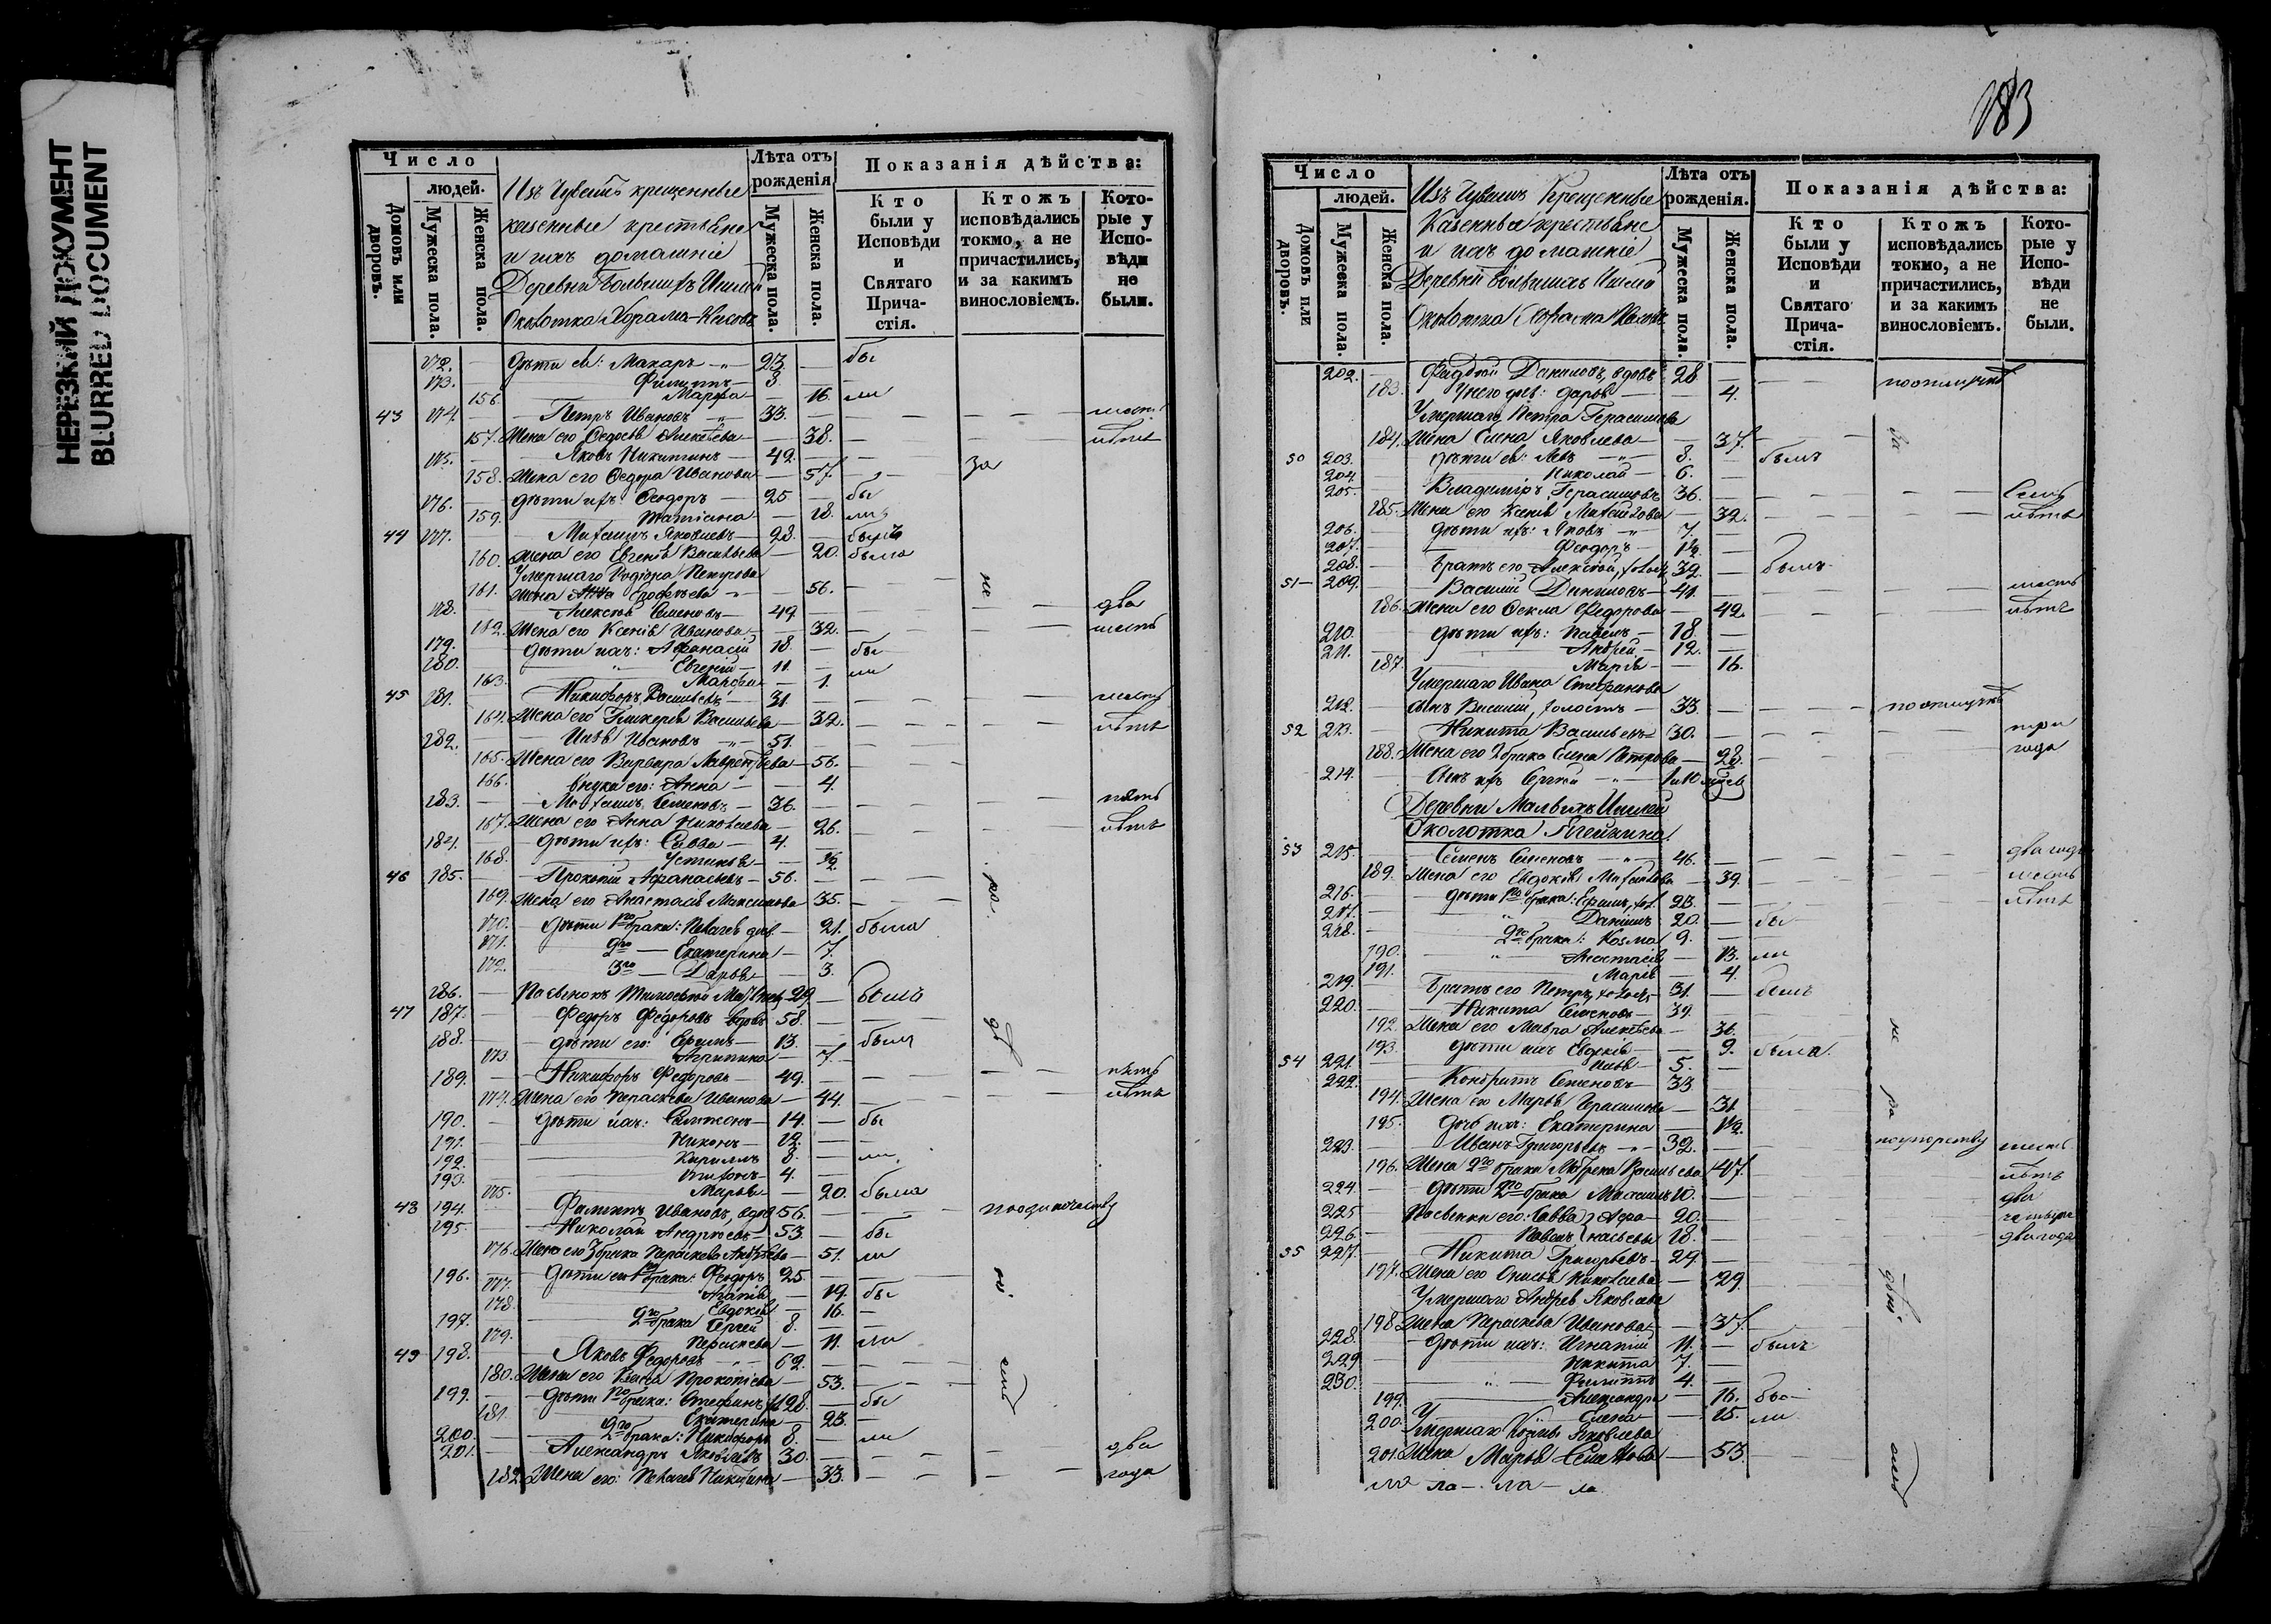 НЕРЕЗКИЙ ДОКУМЕНТ
BLURRED DOCUMENT
Число
людей.
Домовъ или дворовъ.
Мужеска пола.
Женска пола.
Изъ Чувашъ крещенные
казенные крестьяне
и ихъ домашніе
Деревни Большихъ
Околотка
Лѣта отъ рожденія
Мужеска пола.
Женска пола.
Показанія дѣйства:
Кто были у Исповѣди и Святаго Причастія.
Ктожъ исповѣдались токмо, а не причастились, и за какимъ винословіемъ.
Которые у Исповѣди не были.
172. — дѣти ея: Макаръ — 23. — бы
173. Филиппъ — 8. —
156. Марфа — 16. ли
43 174. — Петръ Ивановъ — 33. — шесть
157. Жена его Федосья Алексѣева — 38. — лѣтъ
175. — Яковъ Никитинъ — 42. —
158. Жена его Федора Иванова — 57. за
176. — дѣти ихъ: Феодоръ — 25 — бы
159. Татіана — 18. ли
44 177. — Яковлевъ — 28. — былъ
160. Жена его Евгенія Васильева — 20. была
Умершаго Петрова
161. Жена — 56. — не
178. — Алексѣй Семеновъ — 49. — два
162. Жена его Ксенія Иванова — 32. — шесть
179. — дѣти ихъ: Афанасій 18. — бы
180. Евгеній — 11. — ли
163. Марфа — 1.
45 181. — Никифоръ Васильевъ 31. — шесть
164. Жена его Гликерія Васильева — 32. — лѣтъ
182. — Илья Ивановъ — 51. —
165. Жена его Варвара Лаврентьева — 56. —
166. внука его: Анна — 4.
183. — Семеновъ — 36. — пять
167. Жена его Анна Николаева — 26. — лѣтъ
184. — дѣти ихъ: Савва — 4. —
168. Устинья — ½
46 185. — Прокопій Афанасьевъ — 56. — ра.
169. Жена его Анастасія Максимова 35. —
170. — дѣти 1го брака: Пелагея дѣв. — 21. была
171. 2го — Екатерина — 7.
172. 3го — Дарья — 3.
186. — Пасынокъ Тимофей — 29 — былъ
47 187. — Федоръ Федоровъ вдовъ 58. — дѣ
188. — дѣти его: Ефимъ — 13. — былъ
173. Агрипина — 7.
189. — Никифоръ Федоровъ — 49. — пять
174. Жена его Параскева Иванова — 44. — лѣтъ
190. — дѣти ихъ: — 14. — бы
191. Никонъ — 12. —
192. Кириллъ 8. — ли
193. — 4. —
175. Марья — 20. была
48 194. Филиппъ Ивановъ, вдовъ 56. —
195. — Николай Андреевъ — 53. — бы
176. Жена его 3 брака Параскева Андреева — 51. ли
196. — дѣти его 1го брака: Феодоръ 25. — ні
177. Агапія — 19. бы
178. Евдокія — 16. —
197. 2го брака Сергей 8. —
179. Параскева — 11. ли
49 198. — Яковъ Федоровъ — 62. —
180. Жена его Васса Прокопіева — 53. — емъ
199. — дѣти 1го брака: Стефанъ 28. — бы
181. Екатерина — 23. —
200. 2го брака: Никифоръ 8. — ли
201. — Александръ Яковлевъ 30. — два
182. Жена его: Пелагея Никитина — 33. — года
183
Число
людей.
Домовъ или дворовъ.
Мужеска пола.
Женска пола.
Изъ Чувашъ Крещенные
Казенные крестьяне
и ихъ домашніе
Деревни Большихъ
Околотка
Лѣта отъ рожденія.
Мужеска пола.
Женска пола.
Показанія дѣйства:
Кто были у Исповѣди и Святаго Причастія.
Ктожъ исповѣдались токмо, а не причастились, и за какимъ винословіемъ.
Которые у Исповѣди не были.
202. — Фадѣй Даниловъ, вдовъ 28 — по отлучкѣ
183. У него дѣв: Дарья — 4.
Умершаго Петра Герасимова
184. Жена Елена Яковлева — 37. — за
50 203. дѣти ея: Левъ — 8. — былъ
204. Николай — 6. —
205. Владиміръ Герасимовъ 36. — семь
185. Жена его Ксенія — 32. — лѣтъ
206. — дѣти ихъ: Яковъ — 7. —
207. Феодоръ — 1½. —
208. — братъ его Алексѣй, холостъ 32. — былъ
51 209. Василій Даниловъ — 41. — шесть
186. Жена его Фекла Федорова — 42. — лѣтъ
210. — дѣти ихъ: Павелъ — 18. —
211. Андрей — 12. —
187. Марья — 16.
Умершаго Ивана Стефанова
212. сынъ Василій, холостъ — 33. — по отлучкѣ
52 213. — Никита Васильевъ 30. — три
188. Жена его 2 брака Елена Петрова — 28. — года
214. — Сынъ ихъ Сергей — 1 и 10 мѣсяц
Деревни Малыхъ
Околотка
53 215. Семенъ Семеновъ — 46. — два года
189. Жена его Евдокія — 39. — шесть
216. — дѣти 1го брака: Ефимъ, хол. 23. — лѣтъ
217. Даніилъ 20. — бы
218. 2го брака: Козма 9. —
190. Анастасія — 13. ли
191. Марія — 4.
219. Братъ его Петръ, холостъ 31. — былъ
220. — Никита Семеновъ — 39.
192. Жена его Мавра Алексѣева — 36. — не
193. дѣти ихъ Евдокія — 9. была.
54 221. Илья — 5. —
222. Кондратъ Семеновъ — 33 — ра
194. Жена его Марья Герасимова — 31.
195. дочь ихъ: Екатерина — 1½.
223. — Иванъ Григорьевъ — 32. — по упорству шесть
196. Жена 2го брака Васильева 47. лѣтъ
224. — дѣти 2го брака 10. — два
225 Пасынки его: Савва Афа- 20. — четыре
226. Павелъ насьевы 18. — два года
55 227. — Никита Григорьевъ — 29. —
197. Жена его Анисья Николаева — 29. дѣні.
Умершаго Андрея Яковлева
198 Жена Параскева Иванова — 37. —
228. — дѣти ихъ: Игнатій 11. — былъ
229 — Никита 7. —
230. Филиппъ 4. —
199. Александра — 16. бы —
200. Елена — 15. ли
Умершаго Козмы Яковлева
201. Жена Марья Семенова — 53. емъ